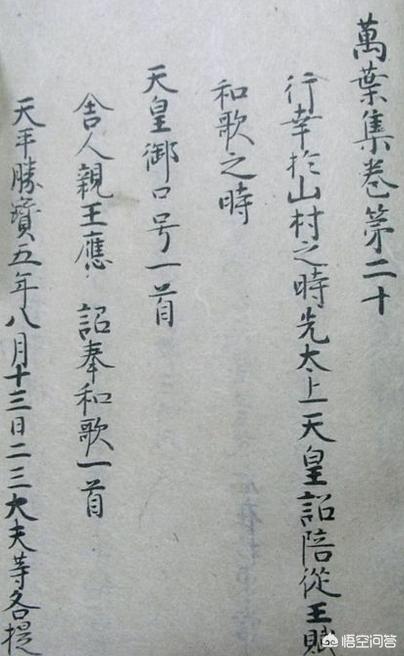 萬葉集巻第二十
行幸於山村之時先太上天皇詔陪從王賦
和歌之時
天皇御口号一首
舎人親王應 詔奉和歌一首
天平勝寳五年八月十三日二三大夫等各提
悟空问答